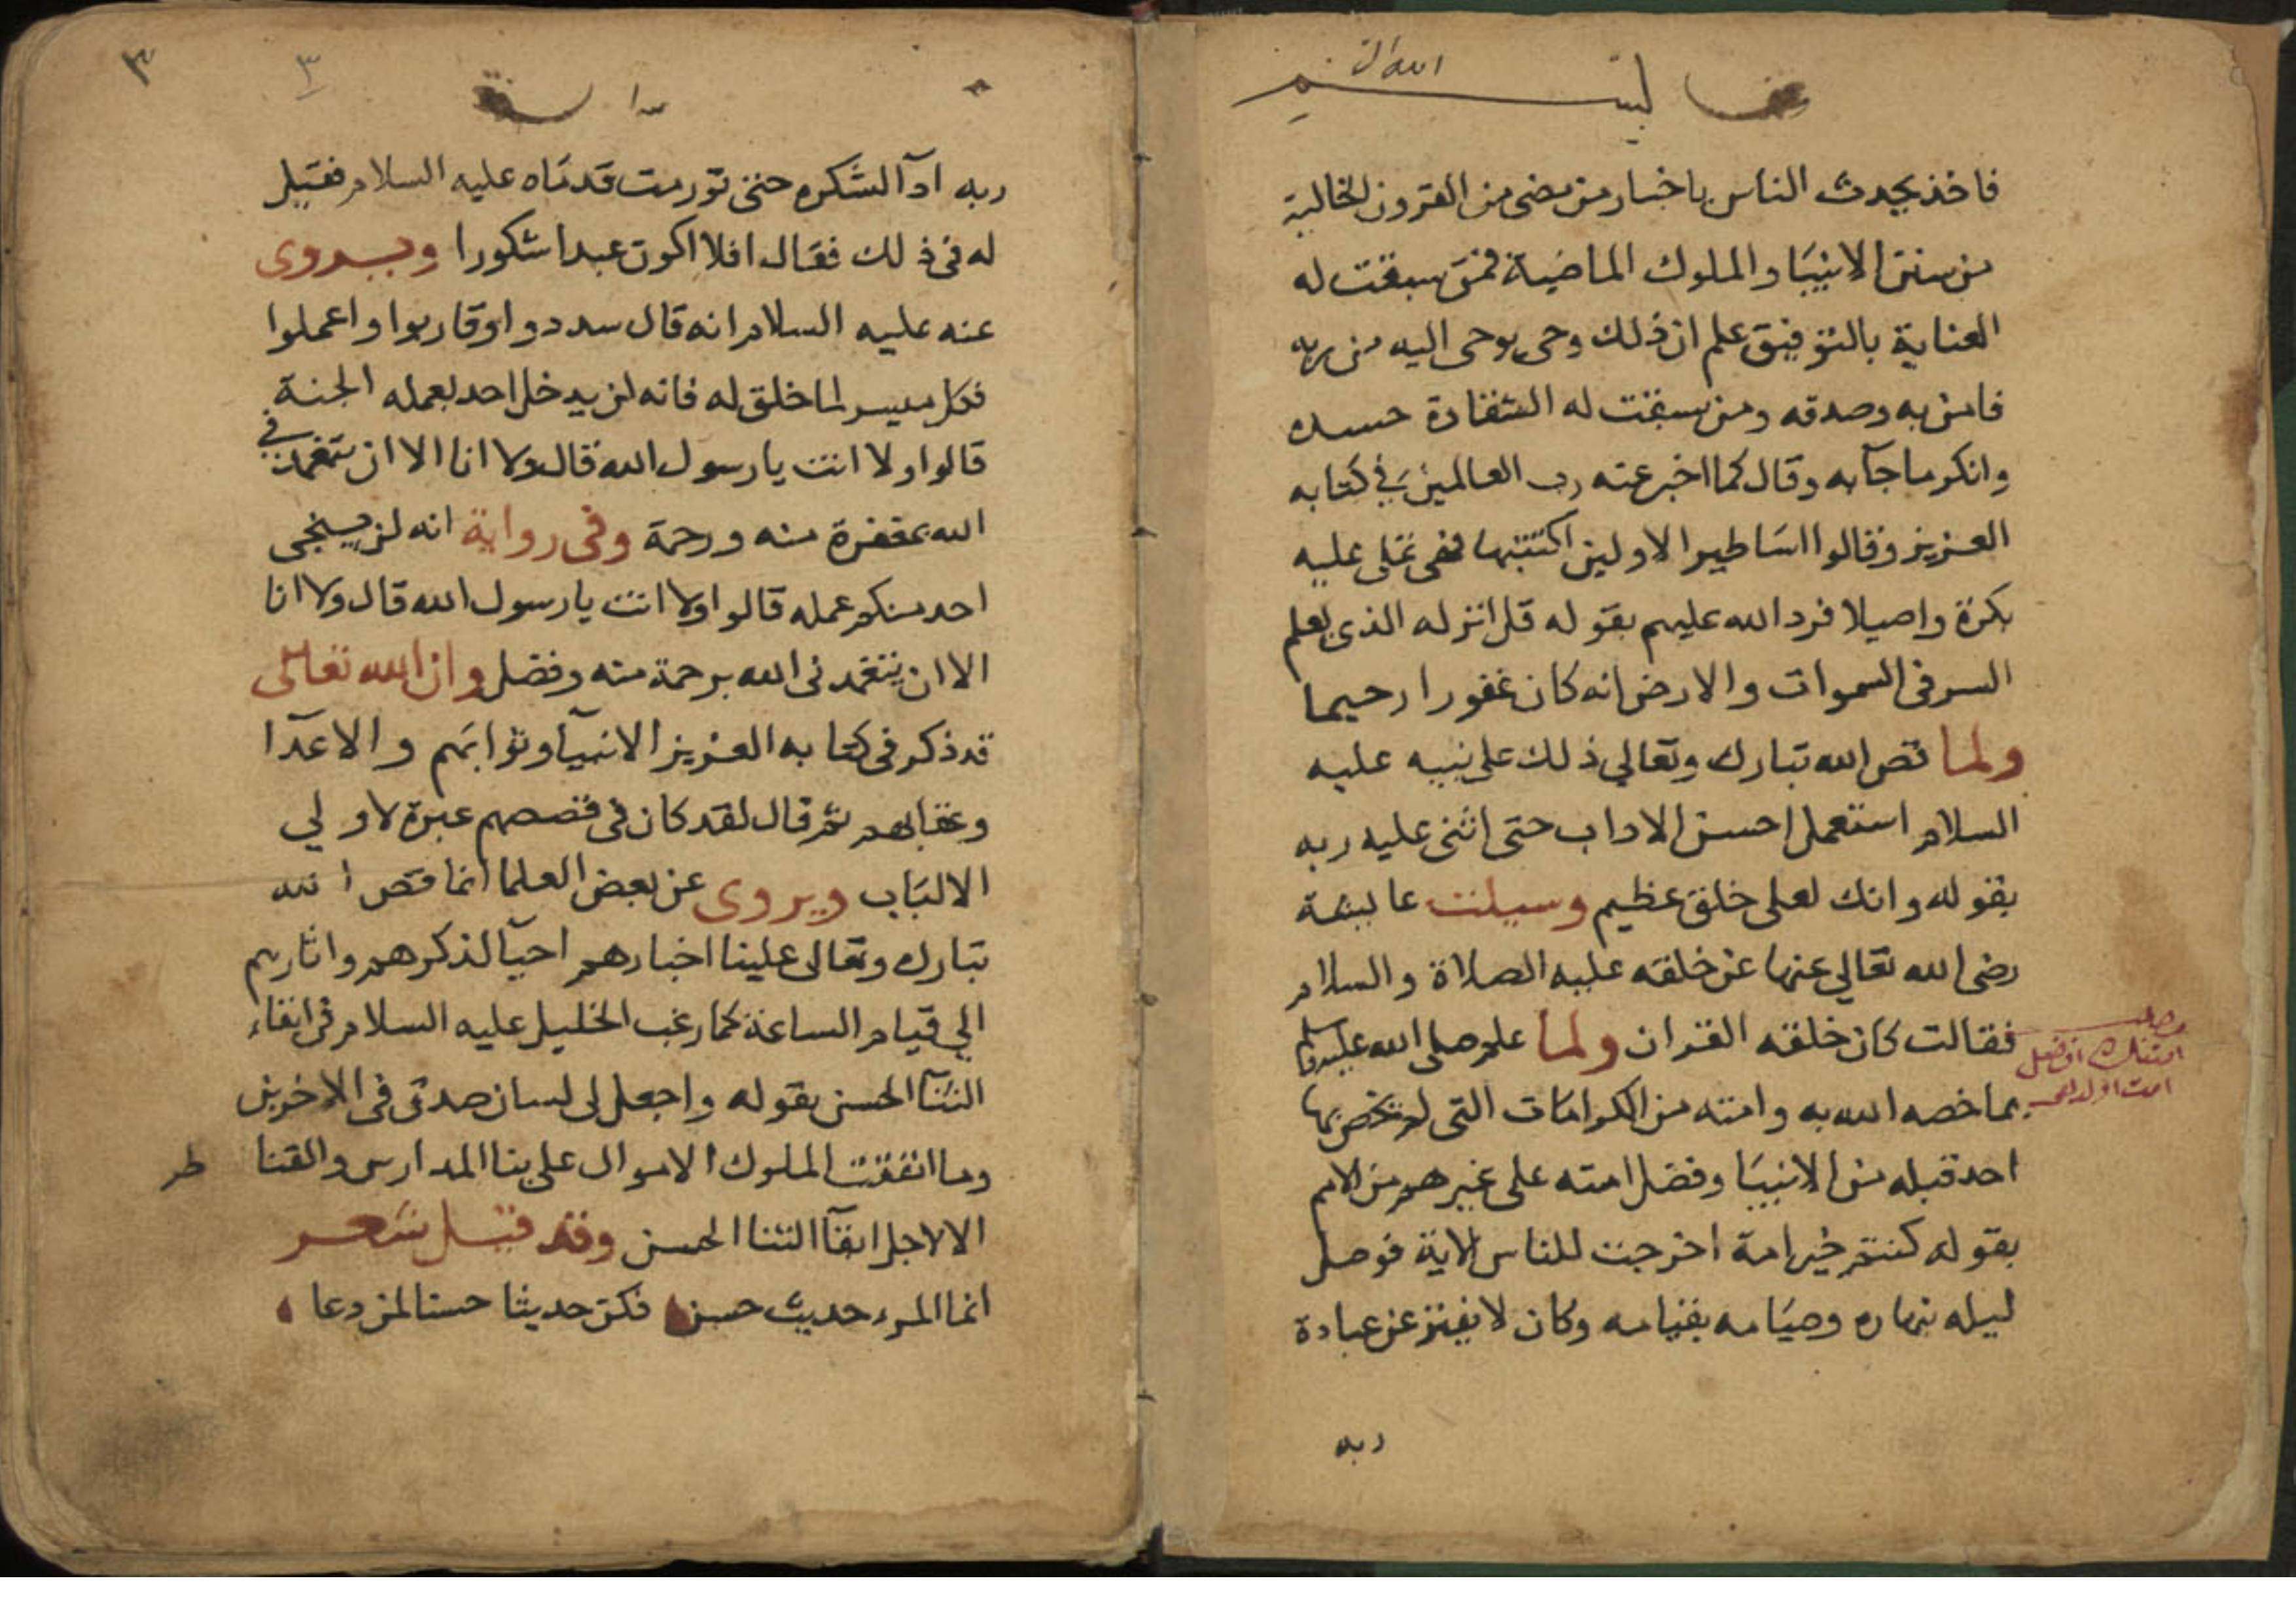 فاخذ يحدث الناس باخبار من مضى من القرون الخالية
من سنن الانبيا والملوك الماضية فمن سبقت له
العناية بالتوفيق علم ان ذلك وحي يوحى اليه من ربه
فامن به وصدقه ومن سبقت له الشقادة حسده
وانكر ما جآ به وقال كما اخبر عنه رب العالمين في كتابه
العزيز وقالوا اساطير الاولين اكتتبها فهى تملى عليه
بكرة واصيلا فرد الله عليهم بقوله قل انزله الذى يعلم
السر فى السموات والارض انه كان غفورا رحيما
ولما قص الله تبارك وتعالي ذلك على نبيه عليه
السلام استعمل احسن الاداب حتى اثنى عليه ربه
بقوله وانك لعلى خلق عظيم وسيلت عايشة
رضى الله تعالي عنها عن خلقه عليه الصلاة والسلام
فقالت كان خلقه القران ولما علم صلى الله عليه وسلم
بما خصه الله به وامته من الكرامات التى لم يخص بها
احد قبله من الانبيا وفضل امته على غيرهم من الامم
بقوله كنتم خير امة اخرجت للناس الاية فوصل
ليله بنهاره وصيامه بقيامه وكان لا يفتر عن عبادة
ربه
٣
٣
ربه ادآ الشكره حتى تورمت قدماه عليه السلام فقيل
له فى ذلك فقال افلا اكون عبدا شكورا ويروى
عنه عليه السلام انه قال سددوا وقاربوا واعملوا
فكل ميسر لما خلق له فانه لن يدخل احد بعمله الجنة
قالوا ولا انت يا رسول الله قال ولا انا الا ان يتغمدنى
الله بمغفرة منه ورحمة وفى رواية انه لن ينجى
احد منكم عمله قالوا ولا انت يا رسول الله قال ولا انا
الا ان يتغمدنى الله برحمة منه وفضل وان الله تعالى
قد ذكر فى كتابه العزيز الانبيآ وثوابهم والاعدآ
وعقابهم ثم قال لقد كان فى قصصهم عبرة لاولي
الالباب ويروى عن بعض العلما انما قص الله
تبارك وتعالى علينا اخبارهم احيآ لذكرهم واثارهم
الي قيام الساعة كما رغب الخليل عليه السلام فى ابقاء
الثنآ الحسن بقوله واجعل لى لسان صدق فى الاخرين
وما انفقت الملوك الاموال على بنا المدارس والقنا
طر
الا لاجل ابقآ الثنا الحسن وقد قيل شعر
انما المرء حديث حسن فكن حديثا حسنا لمن وعا